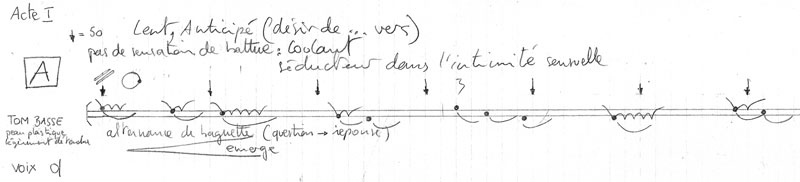 Acte I
= 50 Lent, Anticipé (désir de ... vers)
pas de sensation de battue : Coolant
séducteur dans l'intimité sensuelle
A
3
TOM BASSE
peau plastique
légèrement détendue
alternance de baguette (question → réponse)
emerge
voix